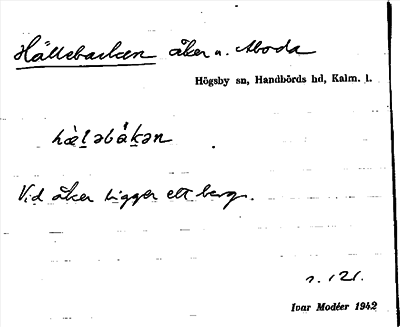 Hällebacken åker u. Aboda
Högsby sn, Handbörds hd, Kalm. l.
hæ̀l̠əbák̠ən
Vid åker ligger ett berg.
s. 121.
Ivar Modéer 1942